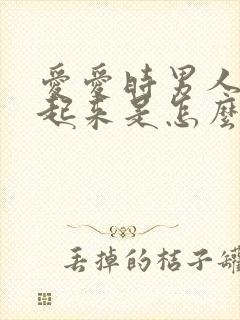 愛愛時男人
起來是怎麼
丟掉的桔子罐